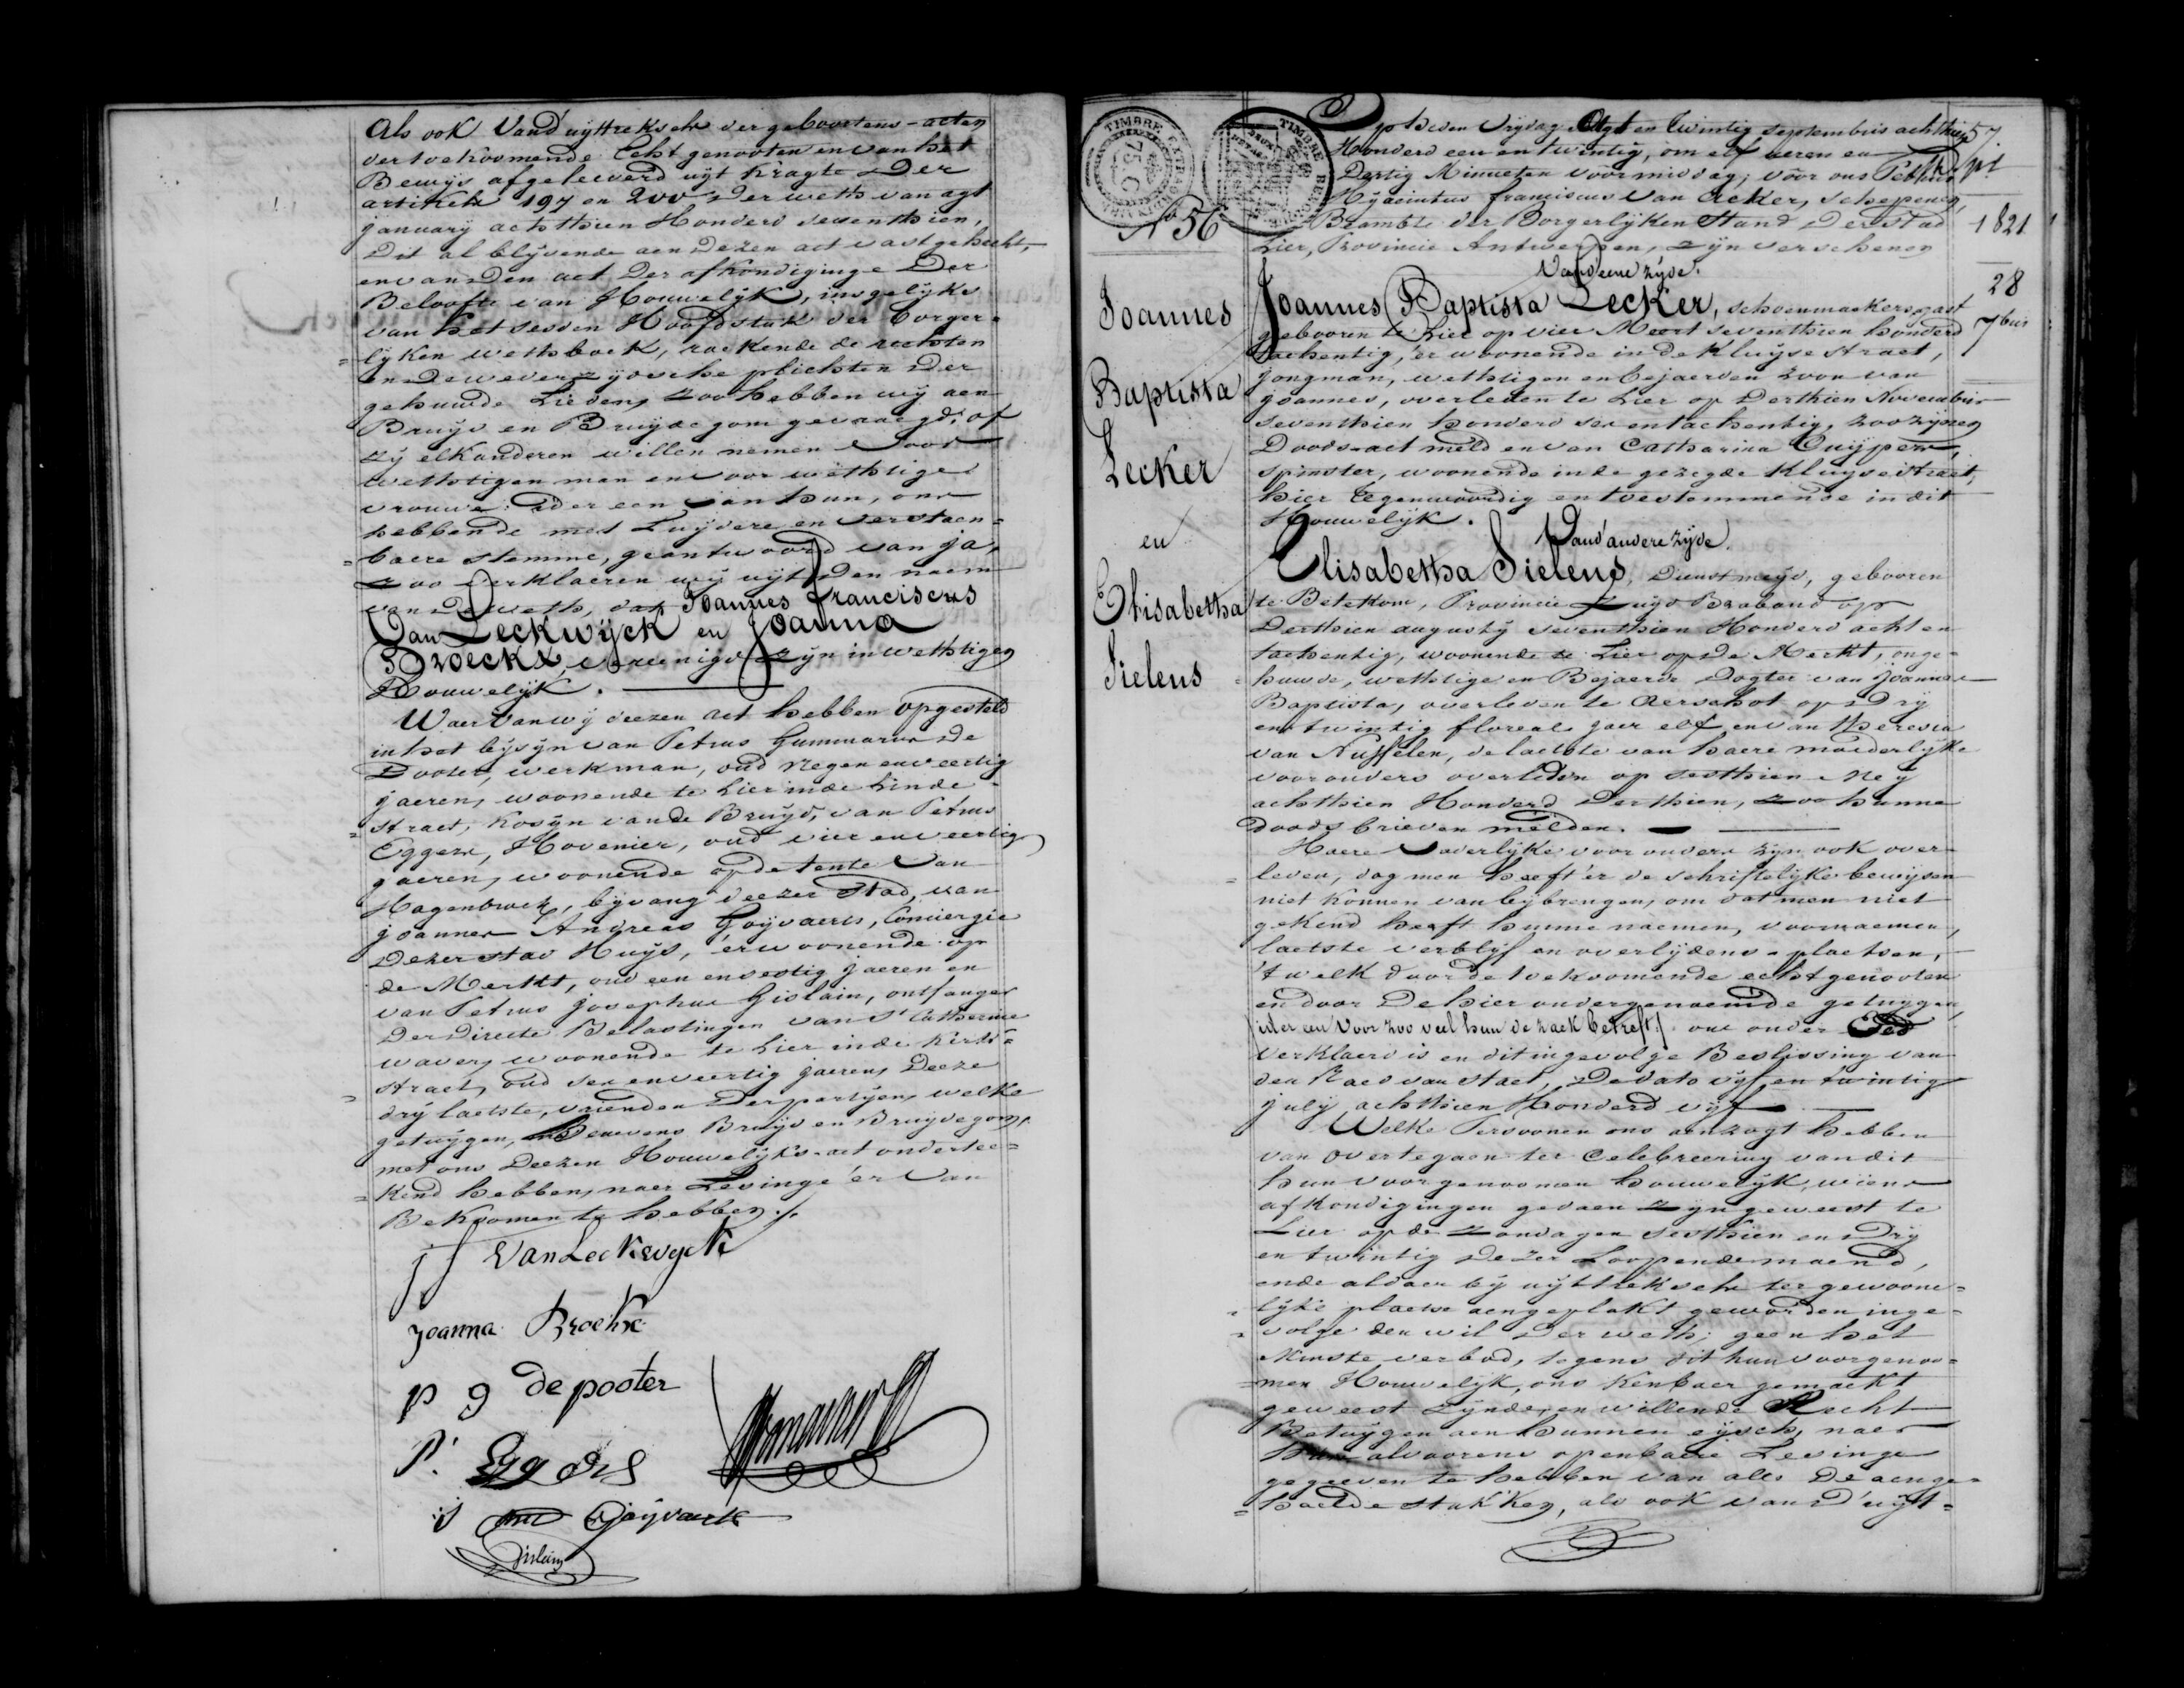 Als ook Vand'uyttreksels der geboortens-acten
der toekoomende Echtgenooten en van het
Bewys afgeleeverd uyt kragte Der
artikels 197 en 200 der weth van agt
january achthien Honderd seventhien,
Dit al blyvende aen dezen act vastgehecht,
en van den act der afkondiginge Der
Belofte van Houwelyk, insgelyks
van het sesden Hoofdstuk der borger=
=lyken wethboek, raekende de rechten
en de wederzydsche plichten der
gehuwde Lieden, zoo hebben wy aen
Bruyd en Bruydegom gevraegd, of
zy elkanderen willen nemen Voor
wettigen man en voor wettige
vrouwe: ider een van hun, ons
hebbende met Luydere en verstaen=
=baere stemme, geantwoord van ja,
zoo verklaeren wy uyt den naem
van de weth, dat Joannes franciscus
Van Leckwÿck en Joanna
Broeckx vereenigd zyn in wettigen
Houwelyk.
Waer van wy deezen act hebben opgesteld
in het bysyn van Petrus Gummarus de
Pooter, werkman, oud negen en veertig
jaeren, woonende te Lier inde Linde=
=straet, kosyn vande Bruyd, van Petrus
Eggers, Hovenier, oud vier en veertig
jaeren, woonende op de tente van
Hagenbroek, byvang deezer stad, van
joannes Andreas Goÿvaerts, Concierge
Dezer stad Huys, er woonende op
de Merkt, oud een en sestig jaeren en
van Petrus josephus Gislain, ontfanger
Der directe Belastingen van St Catherine
waver, woonende te Lier inde kerk=
=straet, oud ses en veertig jaeren, Deeze
dry laetste, vrienden der partyen, welke
getuygen, benevens Bruyd en Bruydegom,
met ons Deezen Houwelyks-act ondertee=
=kend hebben, naer Lezinge er van
Bekoomen te hebben./.
j f Van Leckwyck
joanna Broeckx
p g de pooter
P. Eggers
Goÿvaerts
Gislain
57
Op heden vrydag Agt en twintig septembris achthien
Honderd een en twintig, om elf ueren en
Dertig Minuten voormiddag, voor ons Petrus
Hyacintus franciscus Van Acker, schepenen,
Beambte der Borgerlyken Stand der stad
Lier, Provincie Antwerpen, zyn verschenen
1821
28
7bris
TIMBRE EXTRAORDINAIRE
75 C
TIMBRE
No 56
Joannes
Baptista
Lecker
en
Elisabetha
Sielens
Vand'eene zÿde.
Joannes Baptista Lecker, schoenmaekersgast
gebooren te Lier op vier Meert seventhien honderd
tachentig, er woonende in de Kluyse straet,
jongman, wettigen en bejaerden zoon van
joannes, overleden te Lier op Derthien Novembris
seventhien honderd ses en tachentig, zoo zynen
Doods-act meld en van Catharina Cuypers,
spinster, woonende inde gezegde Kluysestraet,
hier tegenwoordig en toestemmende in dit
Houwelyk.
Vand'andere zÿde.
Elisabetha Sielens, Dienstmeyd, gebooren
te Betekom, Provincie Zuyd Braband op
Derthien augusty seventhien Honderd acht en
tachentig, woonende te Lier op de Merkt, onge=
=huwde, wettige en Bejaerde Dogter van joannes
Baptista, overleden te Aerschot op dry
en twintig floreal jaer elf en van Theresia
van Nuffelen, de laetste van haere moederlyke
voorouders overleden op sesthien Mey
achthien Honderd Derthien, zoo hunne
doodsbrieven melden.
Haere vaderlyke voorouders zyn ook over=
=leden, dog men heeft er de schriftelyke bewysen
niet konnen van bybrengen, om dat men niet
gekend heeft hunne naemen, voornaemen,
laetste verblyf en overlydens-plaetsen,
't welk door de toekoomende echtgenooten
en door De hier ondergenoemde getuygen,
ider een voor zoo veel hun de zaek betreft/. ons onder Eed
verklaerd is en dit ingevolge Beslissing van
den Raed van staet, De dato vyf en twintig
july achthien Honderd vyf.
Welke Persoonen ons aenzogt hebben
van over te gaen ter Celebreering van dit
hun voorgenoomen houwelyk, wiens
afkondigingen gedaen zyn geweest te
Lier op de zondagen sesthien en dry
en twintig dezer Loopende maend,
ende aldaer by uyttreksels ter gewoone=
=lyke plaetse aengeplakt geworden inge=
=volge den wil der weth; geen het
Minste verbod, tegens dit hun voorgenoo=
=men Houwelyk, ons kenbaer gemaekt
geweest zynde, en willende Recht
Betuygen aen hunnen eysch, naer
hun alvoorens openbaere Lezinge
gegeeven te hebben van alle De aenge=
=haelde stukken, als ook van d'uyt=